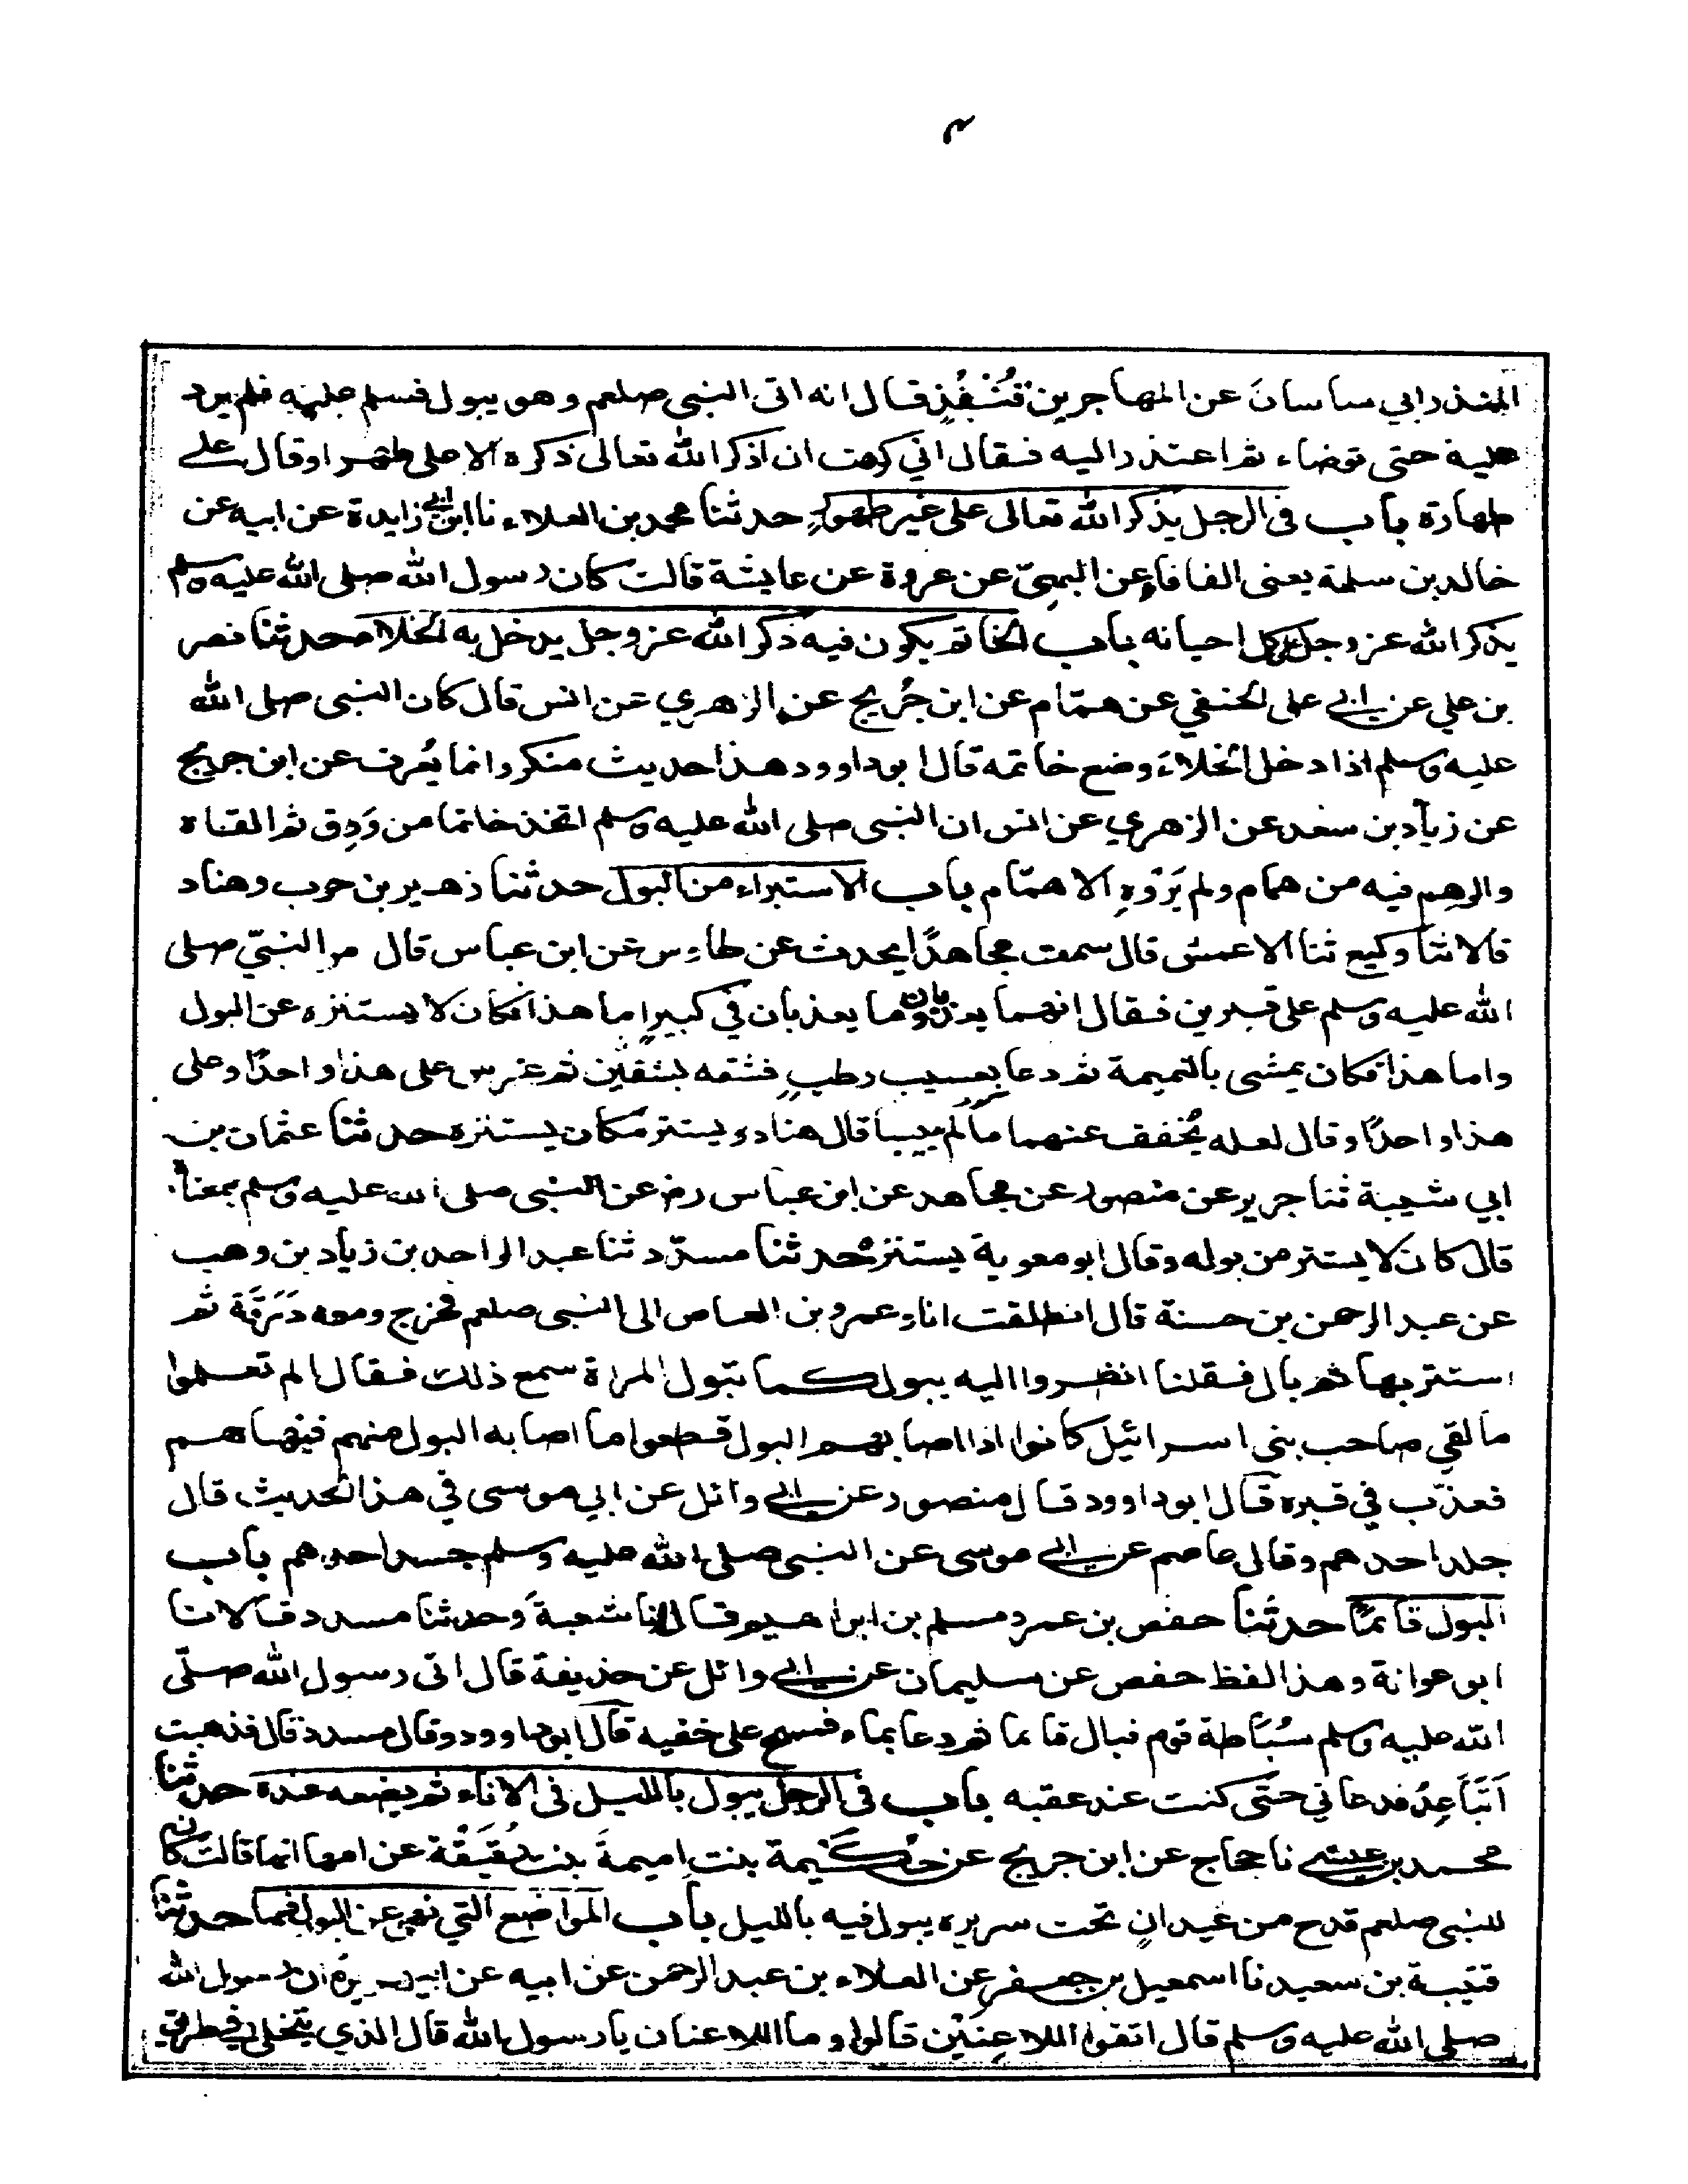 ٣
المنذر ابي ساسان عن المهاجر بن قُنْفُذٍ قال انه اتى النبي صلعم وهو يبول فسلم عليه فلم يرد
عليه حتى توضاء ثم اعتذر اليه فقال اني كرهت ان اذكر الله تعالى ذكره الا على طهر او قال على
طهارة باب في الرجل يذكر الله تعالى على غير طهور حدثنا محمد بن العلاء نا ابن ابي زايدة عن ابيه عن
خالد بن سلمة يعنى الفافاء عن البهيّ عن عروة عن عايشة قالت كان رسول الله صلى الله عليه وسلم
يذكر الله عز وجل على كل احيانه باب الخاتم يكون فيه ذكر الله عز وجل يدخل به الخلاء حدثنا نصر
بن علي عن ابي على الحنفي عن همّام عن ابن جُريج عن الزهري عن انس قال كان النبي صلى الله
عليه وسلم اذا دخل الخلاءَ وضع خاتمه قال ابو داوود هذا حديث منكر وانما يُعرف عن ابن جريج
عن زياد بن سعد عن الزهري عن انس ان النبي صلى الله عليه وسلم اتخذ خاتما من وَرِق ثم القاه
والوهم فيه من همام ولم يَرْوِهِ الا همّام باب الاستبراء من البول حدثنا زهير بن حرب وهناد
قالا ثنا وكيع ثنا الاعمش قال سمعت مجاهدًا يحدث عن طاءوس عن ابن عباس قال مر النبيّ صلى
الله عليه وسلم على قبرين فقال انهما يعذبان وما يعذبان في كبيرٍ اما هذا فكان لا يستنزه عن البول
واما هذا فكان يمشى بالنميمة ثم دعا بعسيب رطبٍ فشقه بنثقين ثم غرس على هذا واحدًا وعلى
هذا واحدًا وقال لعله يُخفف عنهما ما لم ييبسا قال هناد ويستتر مكان يستنزه حدثنا عثمان بن
ابي شيبة ثنا جرير عن منصور عن مجاهد عن ابن عباس رض عن النبي صلى الله عليه وسلم بمعناه
قال كان لا يستتر من بوله وقال ابو معوية يستنزه حدثنا مسدّد ثنا عبد الواحد بن زياد بن وهب
عن عبد الرحمن بن حسنة قال انطلقت انا وعمرو بن العاص الى النبي صلعم فخرج ومعه دَرَقَة ثم
استتر بها ثم بال فقلنا انظروا اليه يبول كما تبول المراة سمع ذلك فقال الم تعلموا
ما لقي صاحب بنى اسرائيل كانوا اذا اصابهم البول قطعوا ما اصابه البول منهم فنهاهم
فعذّب في قبره قال ابو داوود قال منصور عن ابي وائل عن ابي موسى في هذا الحديث قال
جلد احدهم وقال عاصم عن ابي موسى عن النبي صلى الله عليه وسلم جسد احدهم باب
البول قائمًا حدثنا حفص بن عمر ومسلم بن ابراهيم قالا نا شعبة وحدثنا مسدد قالا نا
ابو عوانة وهذا لفظ حفص عن سليمان عن ابي وائل عن حذيفة قال اتى رسول الله صلّى
الله عليه وسلم سُبَاطة قوم فبال قائما ثم دعا بماء فمسح على خفيه قال ابو داوود وقال مسدد قال فذهبت
اَتَبَاعَدُ فدعاني حتى كنت عند عقبه باب في الرجل يبول بالليل في الاناء ثم يضعه عنده حدثنا
محمد بن عيسى نا حجاج عن ابن جريج عن حُكَيْمة بنتِ اميمةَ بنت رُقَيقَة عن امها انها قالت كان
للنبي صلعم قدح من عيدانٍ تحت سريره يبول فيه بالليل باب المواضع التي نهي عن البول فيها حدثنا
قتيبة بن سعيد نا اسمعيل بن جعفر عن العلاء بن عبد الرحمن عن ابيه عن ابي هريرة ان رسول الله
صلى الله عليه وسلم قال اتقوا اللاعِنَيْن قالوا وما اللاعنان يا رسول الله قال الذي يتخلى في طريق